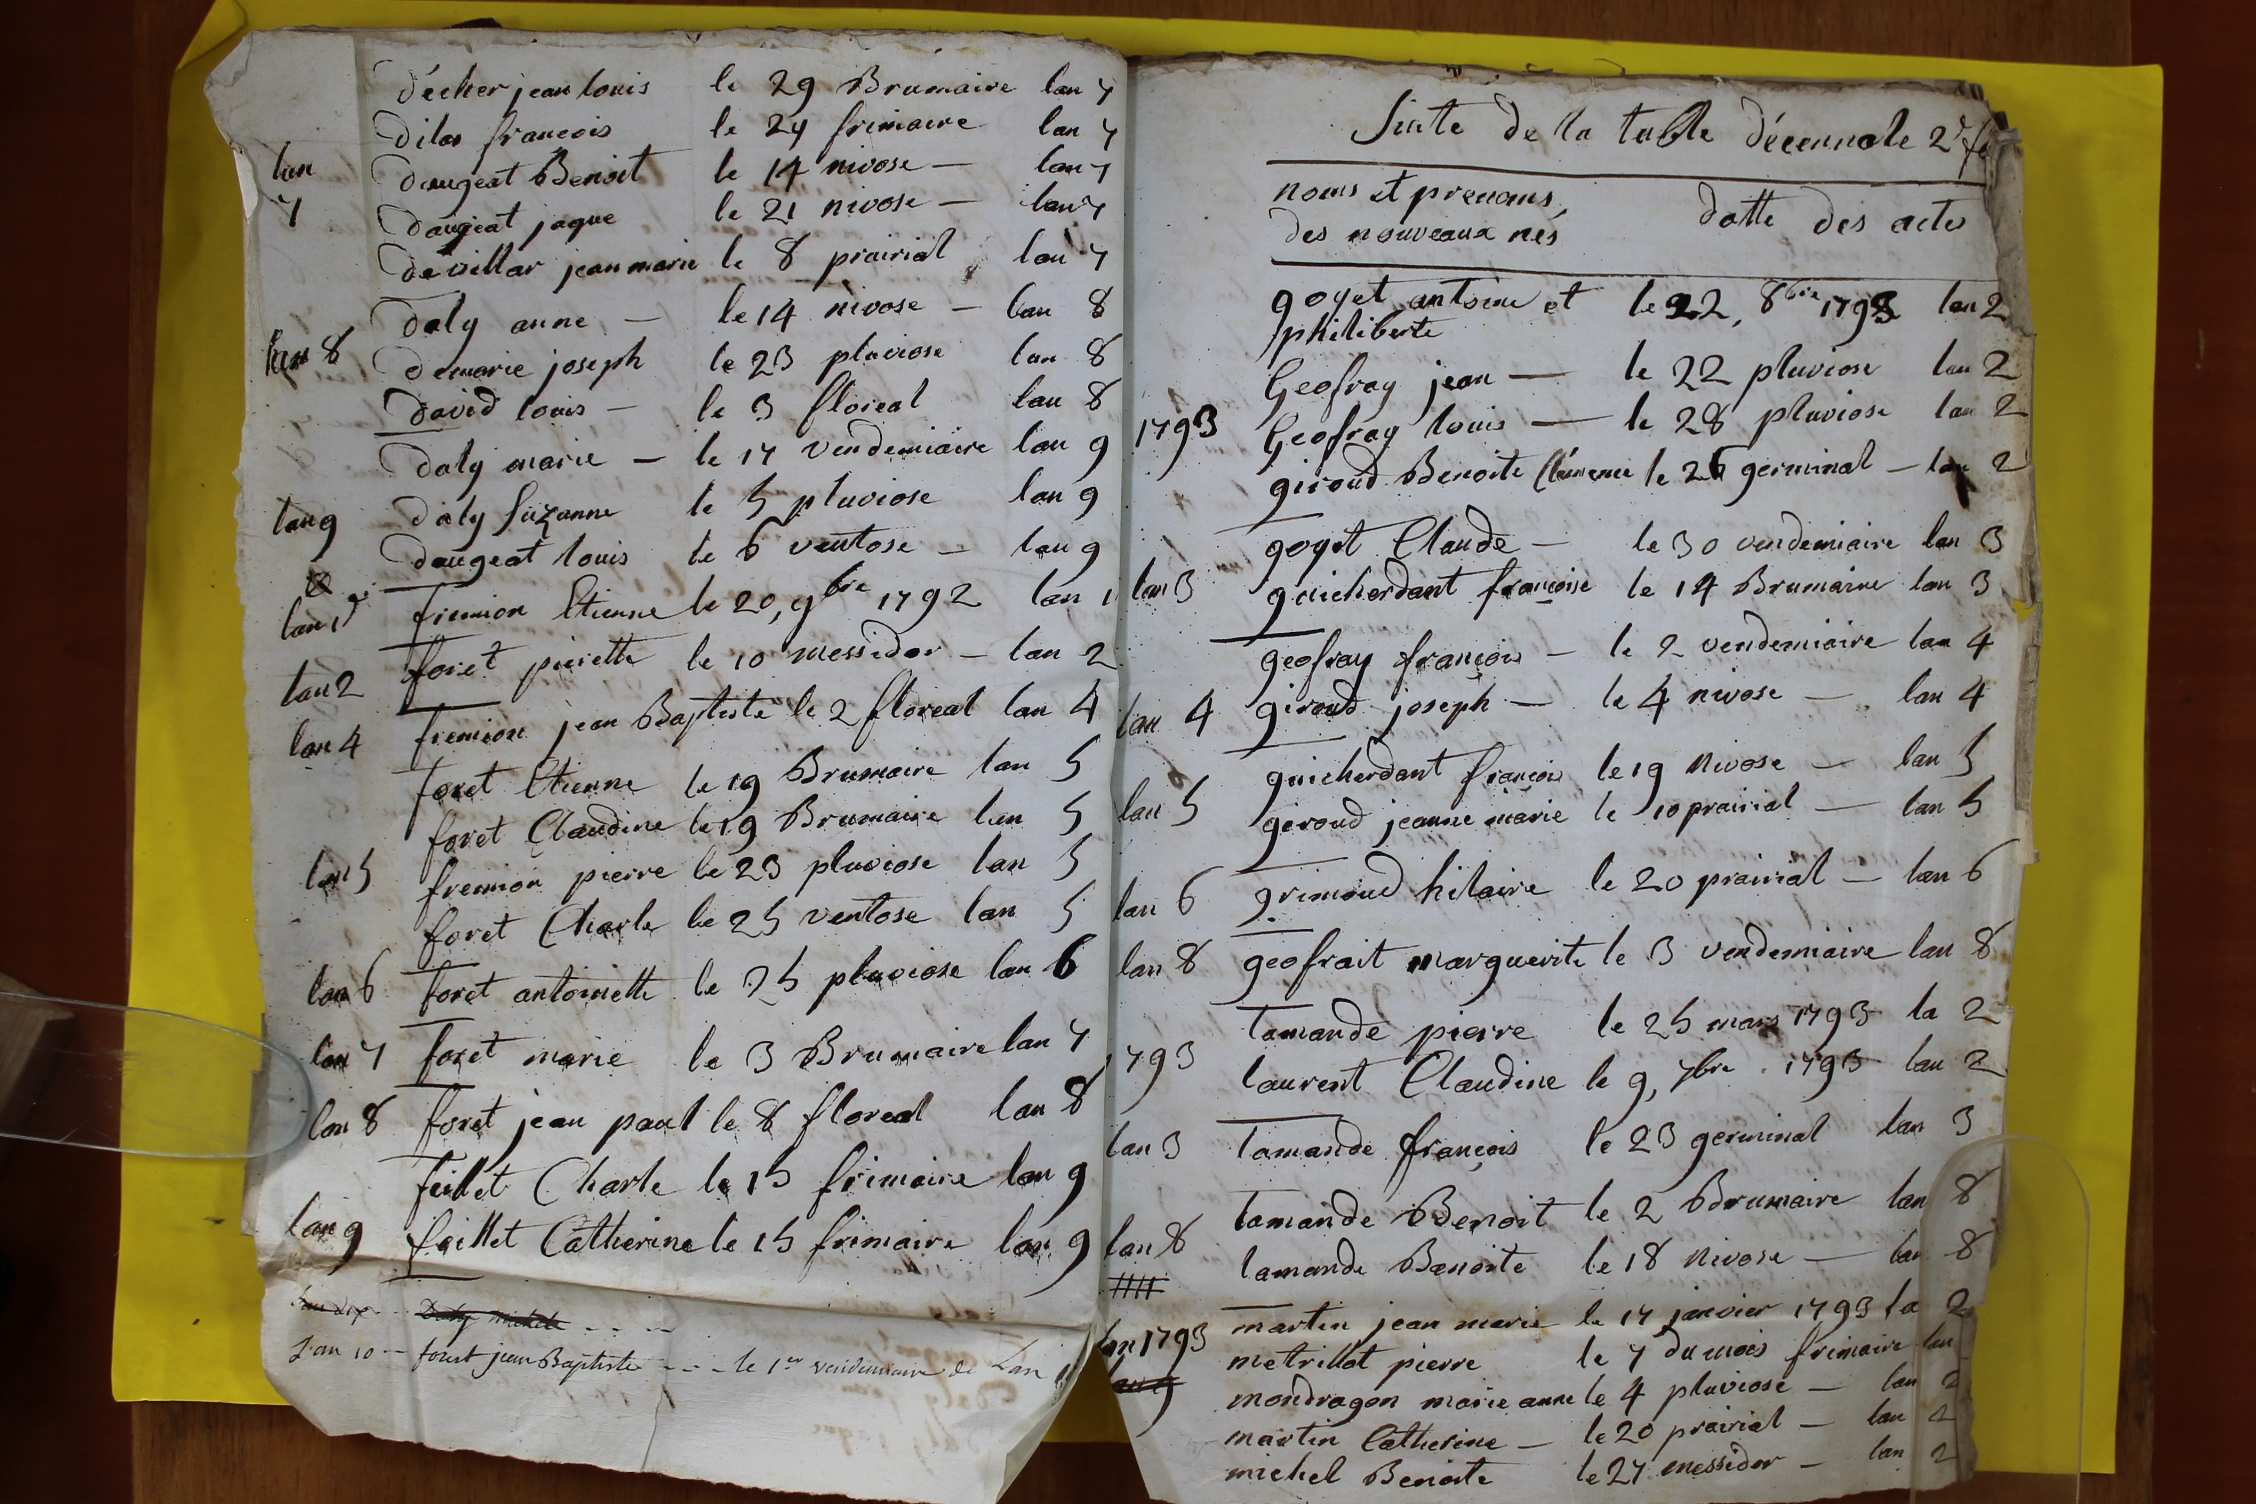 décher jean louis le 29 Brumaire lan 7
dilas françois le 24 frimaire lan 7
lan daugeat Benoit le 14 nivose — lan 7
7 daugeat jaque le 21 nivose — lan 7
devillar jean marie le 8 prairial lan 7
daly anne — le 14 nivose — lan 8
lan 8 demarie joseph le 23 pluviose lan 8
david louis — le 3 floreal lan 8
daly marie — le 17 vendemiaire lan 9
lan 9 daly Suzanne le 5 pluviose lan 9
daugeat louis le 6 ventose — lan 9
lan 1 fremion Etienne le 20, 9bre 1792 lan 1
lan 2 foret pierette le 10 messidor — lan 2
lan 4 fremion jean Baptiste le 2 floreal lan 4
foret Etienne le 19 Brumaire lan 5
foret Claudine le 19 Brumaire lan 5
lan 5 fremion pierre le 23 pluviose lan 5
foret Charle le 25 ventose lan 5
lan 6 foret antoinette le 25 pluviose lan 6
lan 7 foret marie le 3 Brumaire lan 7
lan 8 foret jean paul le 8 floreal lan 8
feillet Charle le 15 frimaire lan 9
lan 9 feillet Catherine le 15 frimaire lan 9
lan dix -- Daly michele - - -
Lan 10 — foret jean Baptiste - - - le 1er vendemiaire de Lan
Suite de la table décennale 2e
noms et prenoms, datte des actes
des nouveaux nés
goyet antoine et le 22, 8bre 1793 lan 2
philiberte
Geofray jean — le 22 pluviose lan 2
1793 Geofray louis — le 28 pluviose lan 2
giroud Benoite Clémence le 26 germinal — lan 2
goyet Claude — le 30 vendemiaire lan 3
lan 3 guicherdant françoise le 14 Brumaire lan 3
geofray françois — le 2 vendemiaire lan 4
lan 4 giroud joseph — le 4 nivose — lan 4
guicherdant françois le 19 nivose — lan 5
lan 5 giroud jeanne marie le 10 prairial — lan 5
lan 6 grimoud hilaire le 20 prairial — lan 6
lan 8 geofrait marguerite le 3 vendemiaire lan 8
lamande pierre le 25 mars 1793 la 2
1793 laurent Claudine le 9, 7bre 1793 lan 2
lan 3 lamande françois le 23 germinal lan 3
lamande Benoit le 2 Brumaire lan 8
lan 8 lamande Benoite le 18 nivose — lan 8
martin jean marie le 17 janvier 1793 la 2
lan 1793 metrillot pierre le 7 du mois frimaire lan
mondragon marie anne le 4 pluviose — lan 2
martin Catherine — le 20 prairial — lan 2
michel Benoite le 27 messidor — lan 2